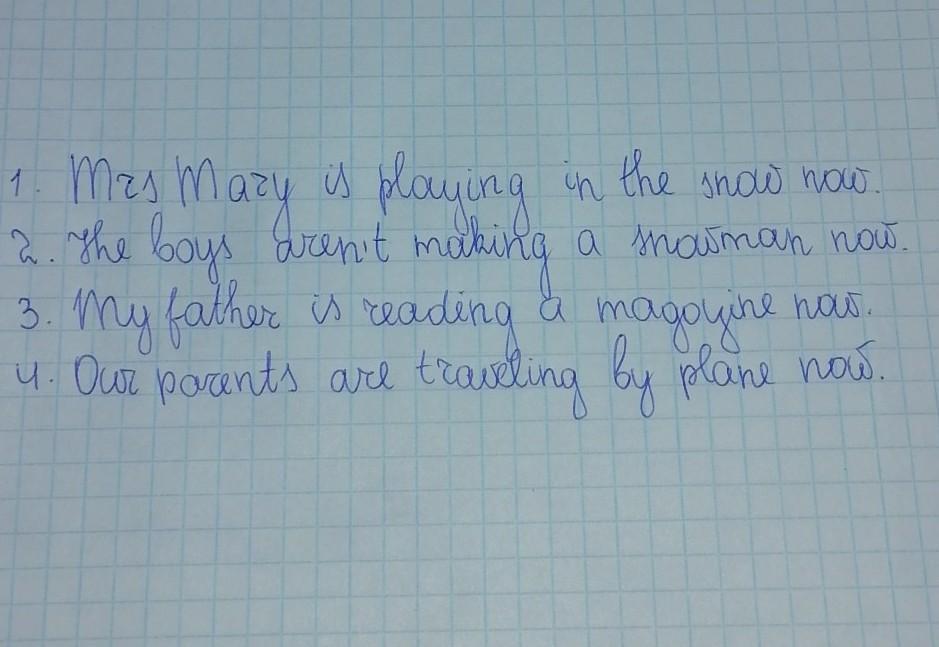 1. Mrs Mary is playing in the snow now.
2. The boys aren't making a snowman now.
3. My father is reading a magazine now.
4. Our parents are traveling by plane now.